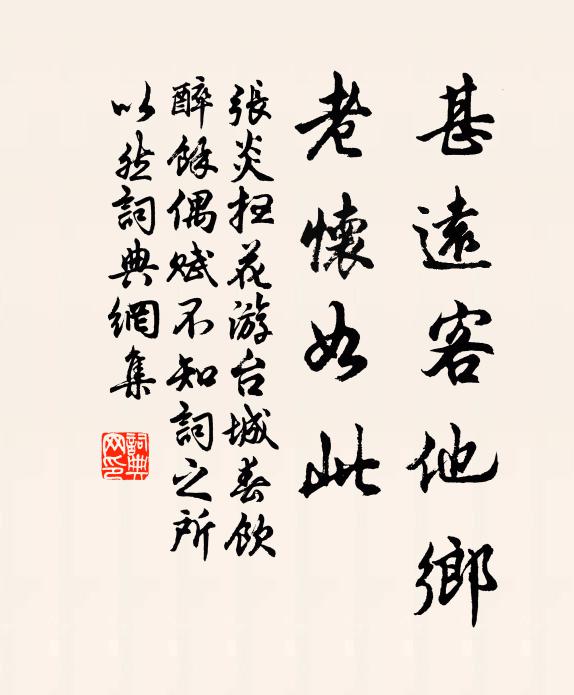 甚遠客他鄉
老懷如此
張炎扫花游台城春飲
醉餘偶賦不知詞之所
以然詞典網集
詞典網印